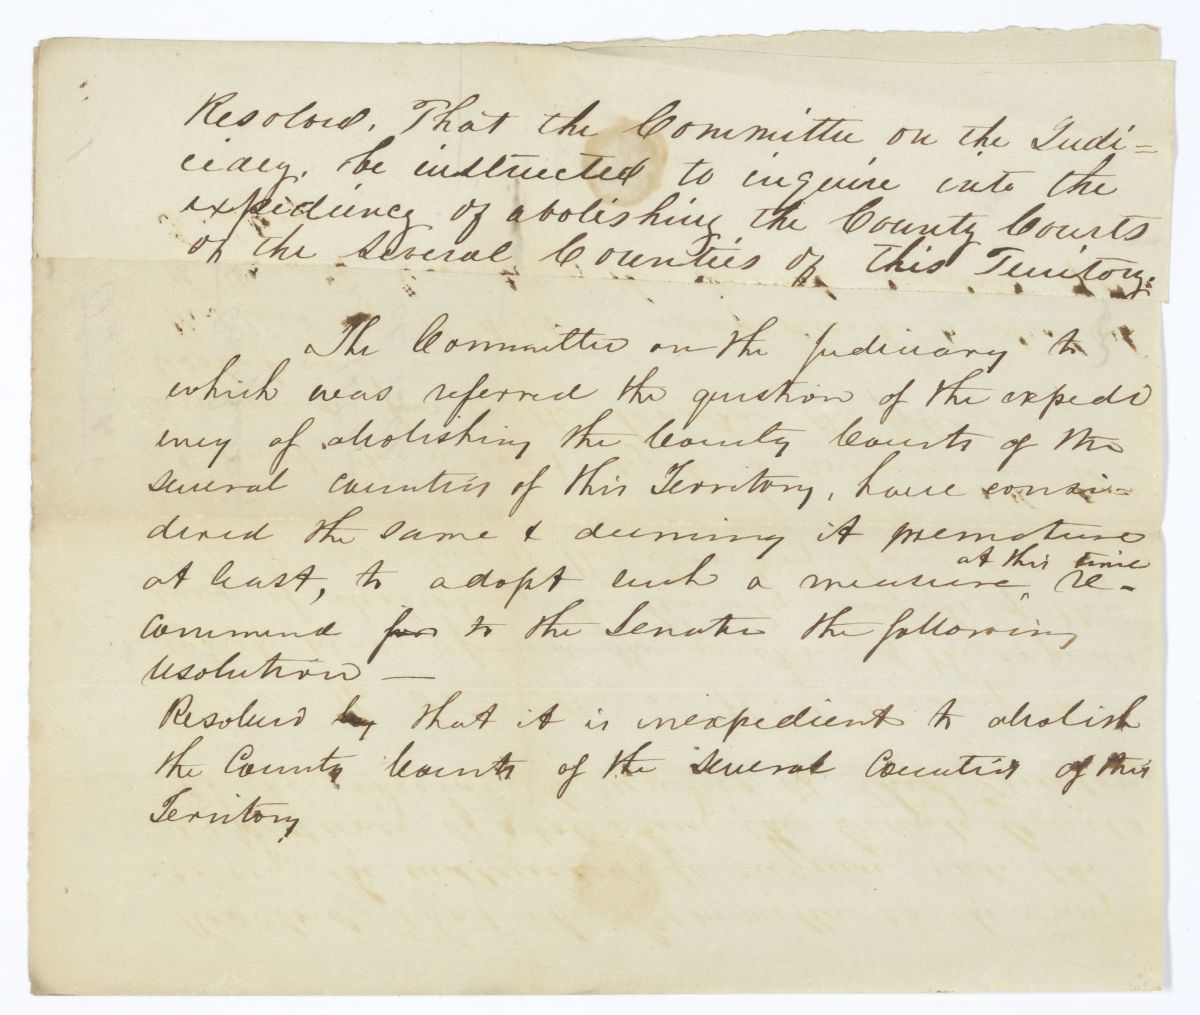 Resolved, That the Committee on the Judi=
ciary, be instructed to inquire into the
expediency of abolishing the County Courts
of the several Counties of this Territory.
The Committee on the Judiciary to
which was referred the question of the expedi
ency of abolishing the County Courts of the
several counties of this Territory, have consi=
dered the same & deeming it premature
at this time
at least, to adopt such a measure, re-
commend for to the Senate the following
resolution —
Resolved by that it is inexpedient to abolish
the County Courts of the several Counties of this
Territory